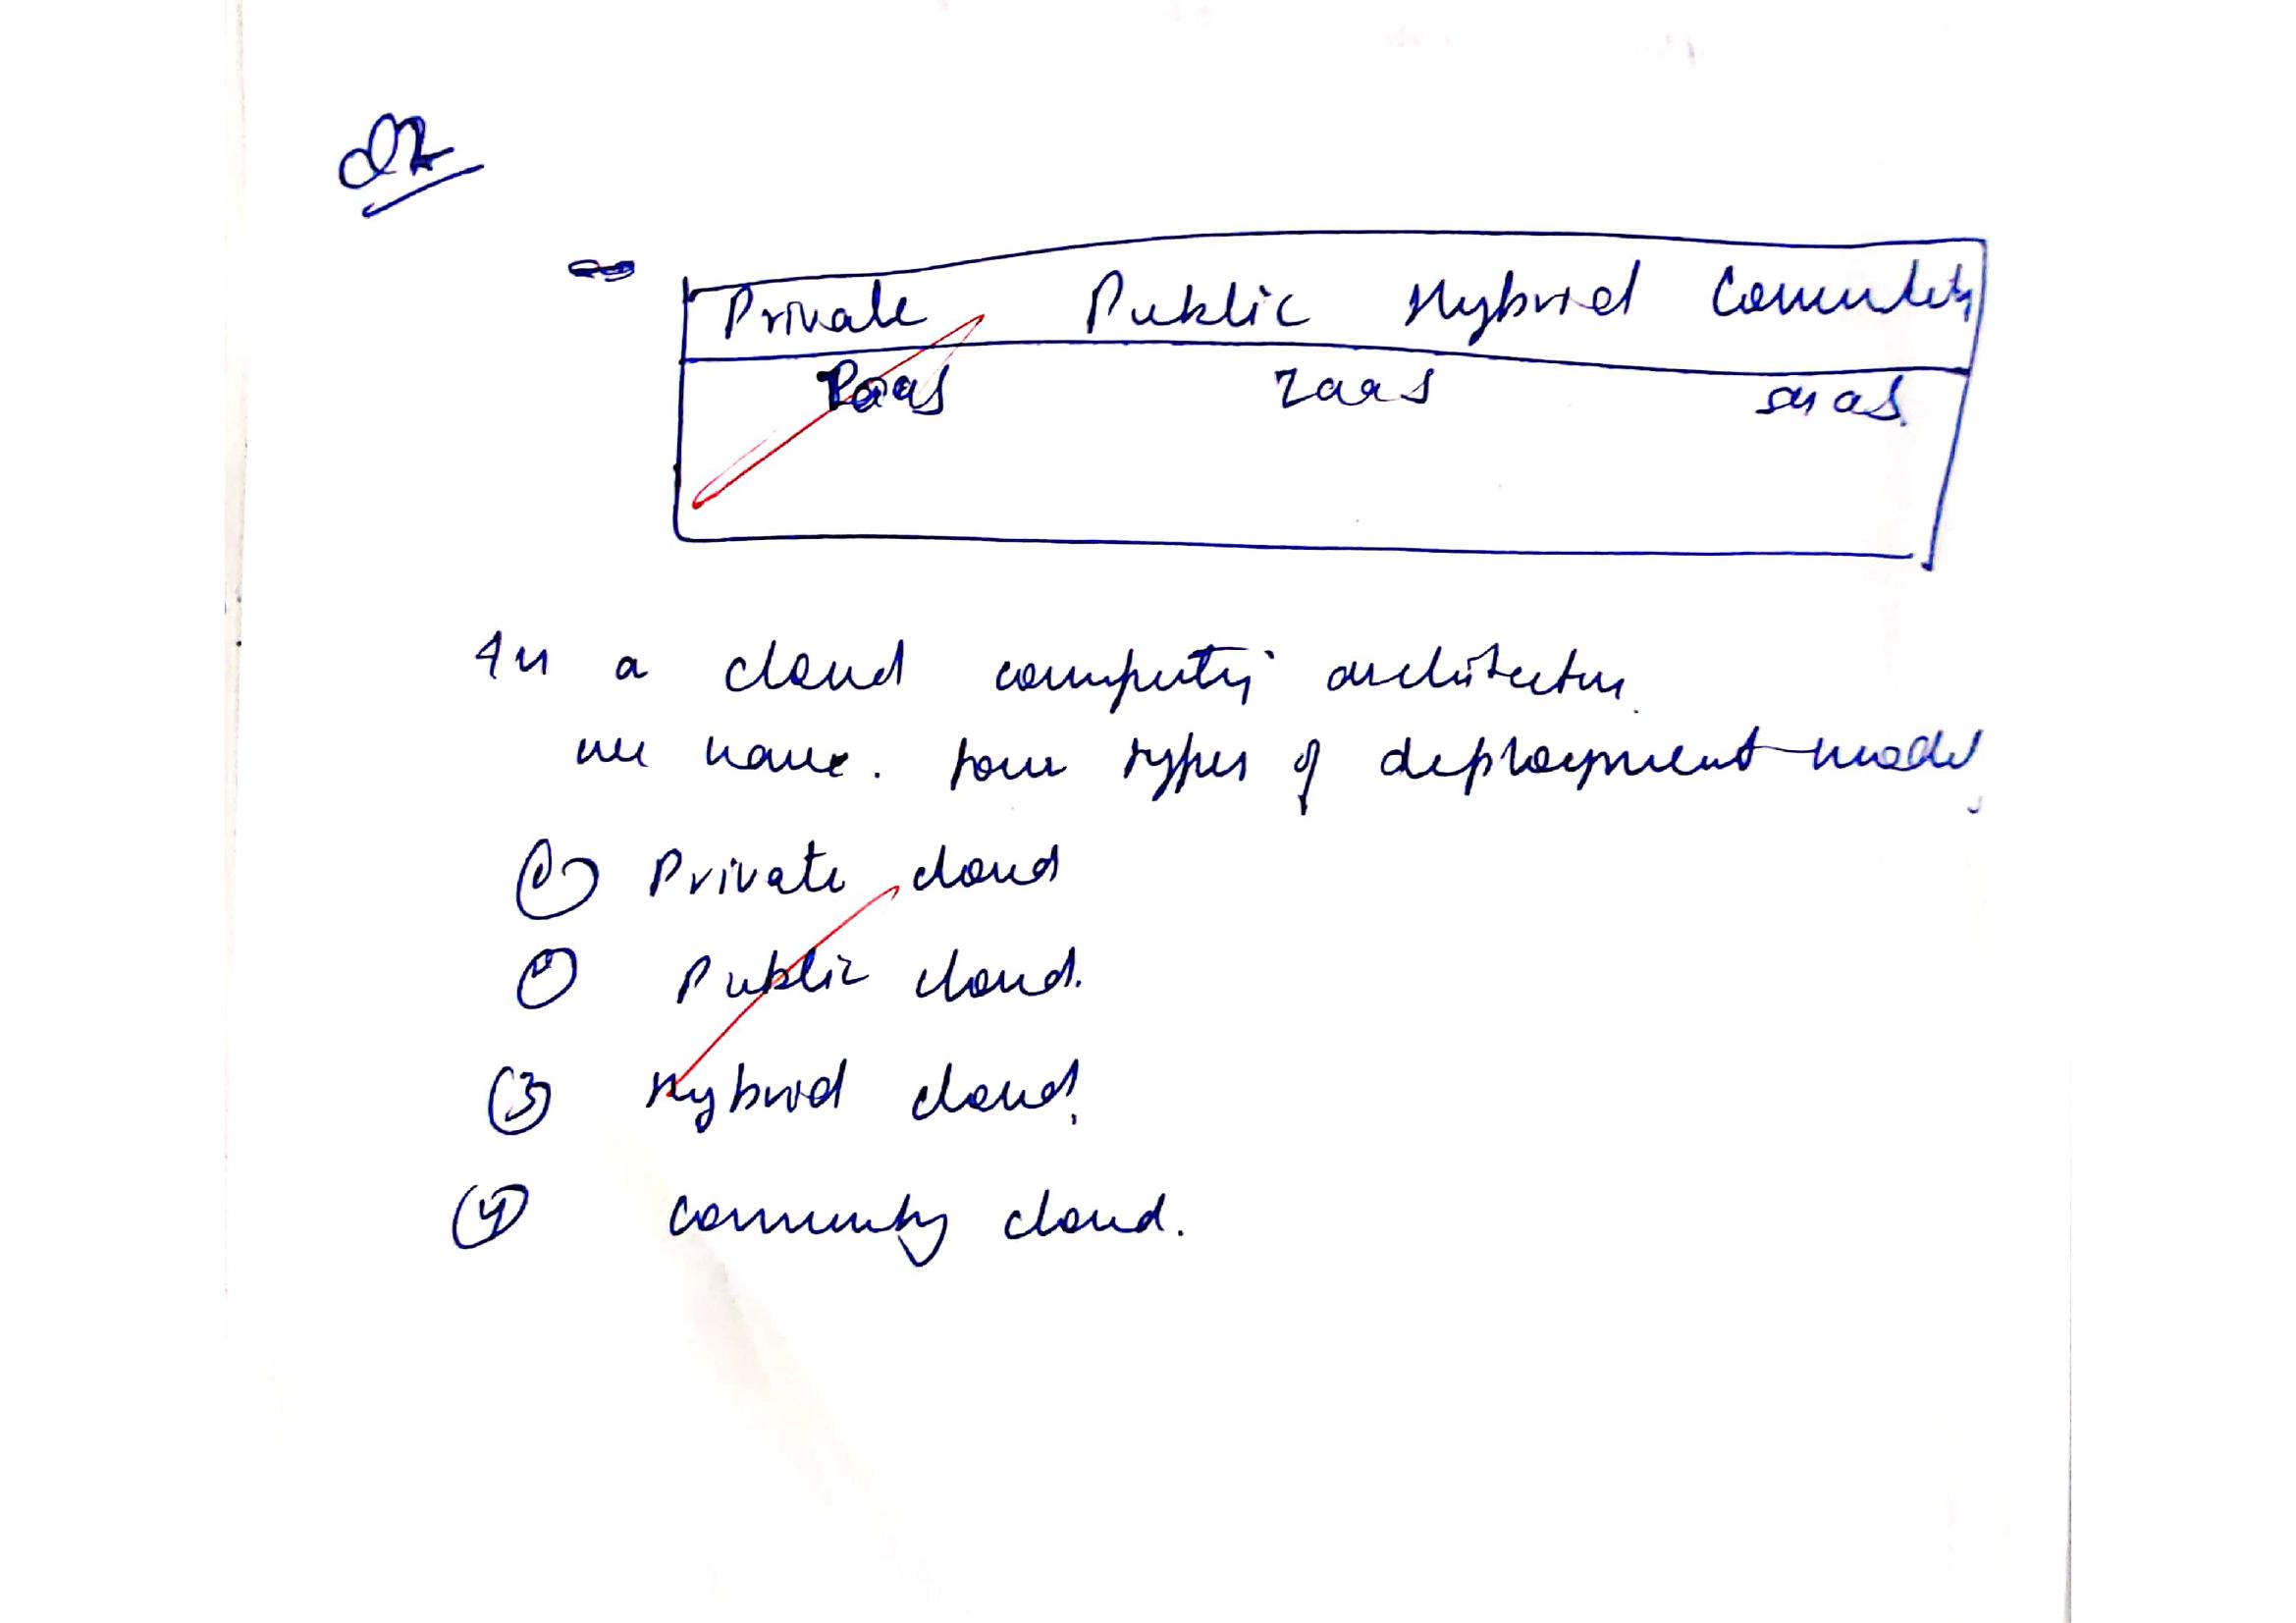 Q2
Private Public Hybrid Community
Paas Iaas saas.
In a cloud computing architecture
we have. four types of deployment model
(1) Private cloud
Public cloud.
(3) Hybrid cloud.
(4) Community cloud.